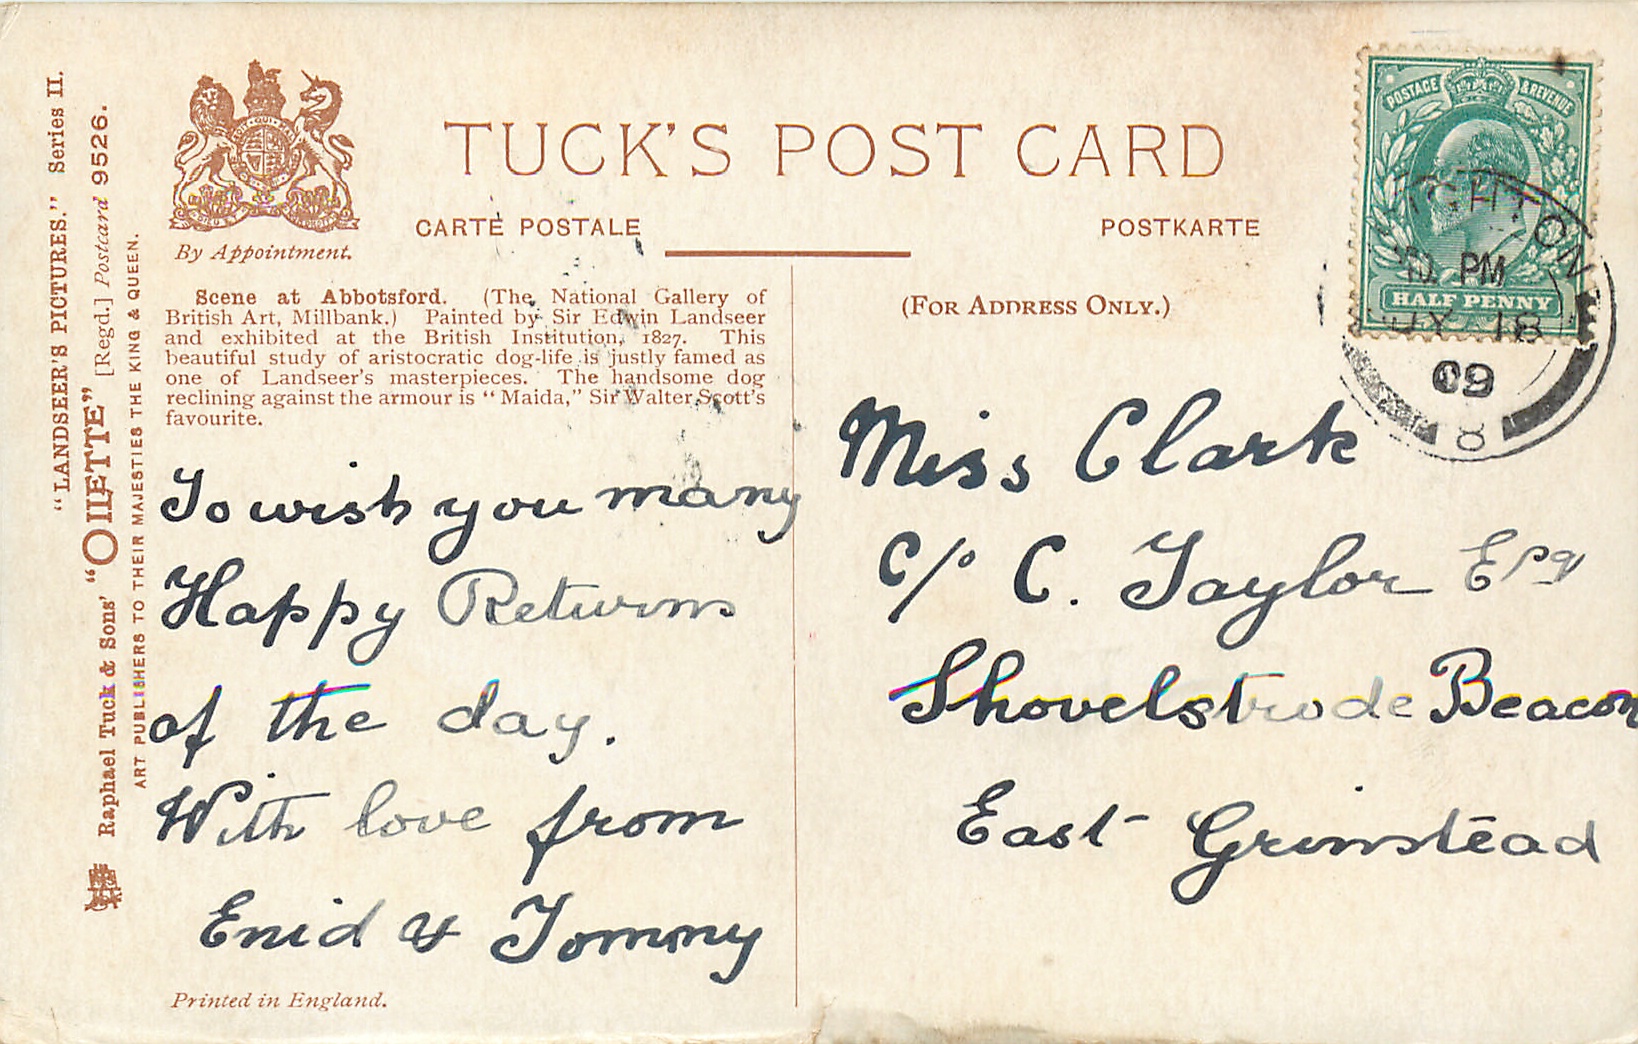 "LANDSEER'S PICTURES." Series II.
Raphael Tuck & Sons' "OILETTE" [Regd.] Postcard 9526.
ART PUBLISHERS TO THEIR MAJESTIES THE KING & QUEEN.
By Appointment.
TUCK'S POST CARD
CARTE POSTALE
POSTKARTE
Scene at Abbotsford. (The National Gallery of
British Art, Millbank.) Painted by Sir Edwin Landseer
and exhibited at the British Institution, 1827. This
beautiful study of aristocratic dog-life is justly famed as
one of Landseer's masterpieces. The handsome dog
reclining against the armour is "Maida," Sir Walter Scott's
favourite.
To wish you many
Happy Returns
of the day.
With love from
Enid & Tommy
Printed in England.
(FOR ADDRESS ONLY.)
Miss Clark
c/o C. Taylor Esq
Shovelstrode Beacon
East Grinstead
POSTAGE & REVENUE
HALF PENNY
PM
18
09
8